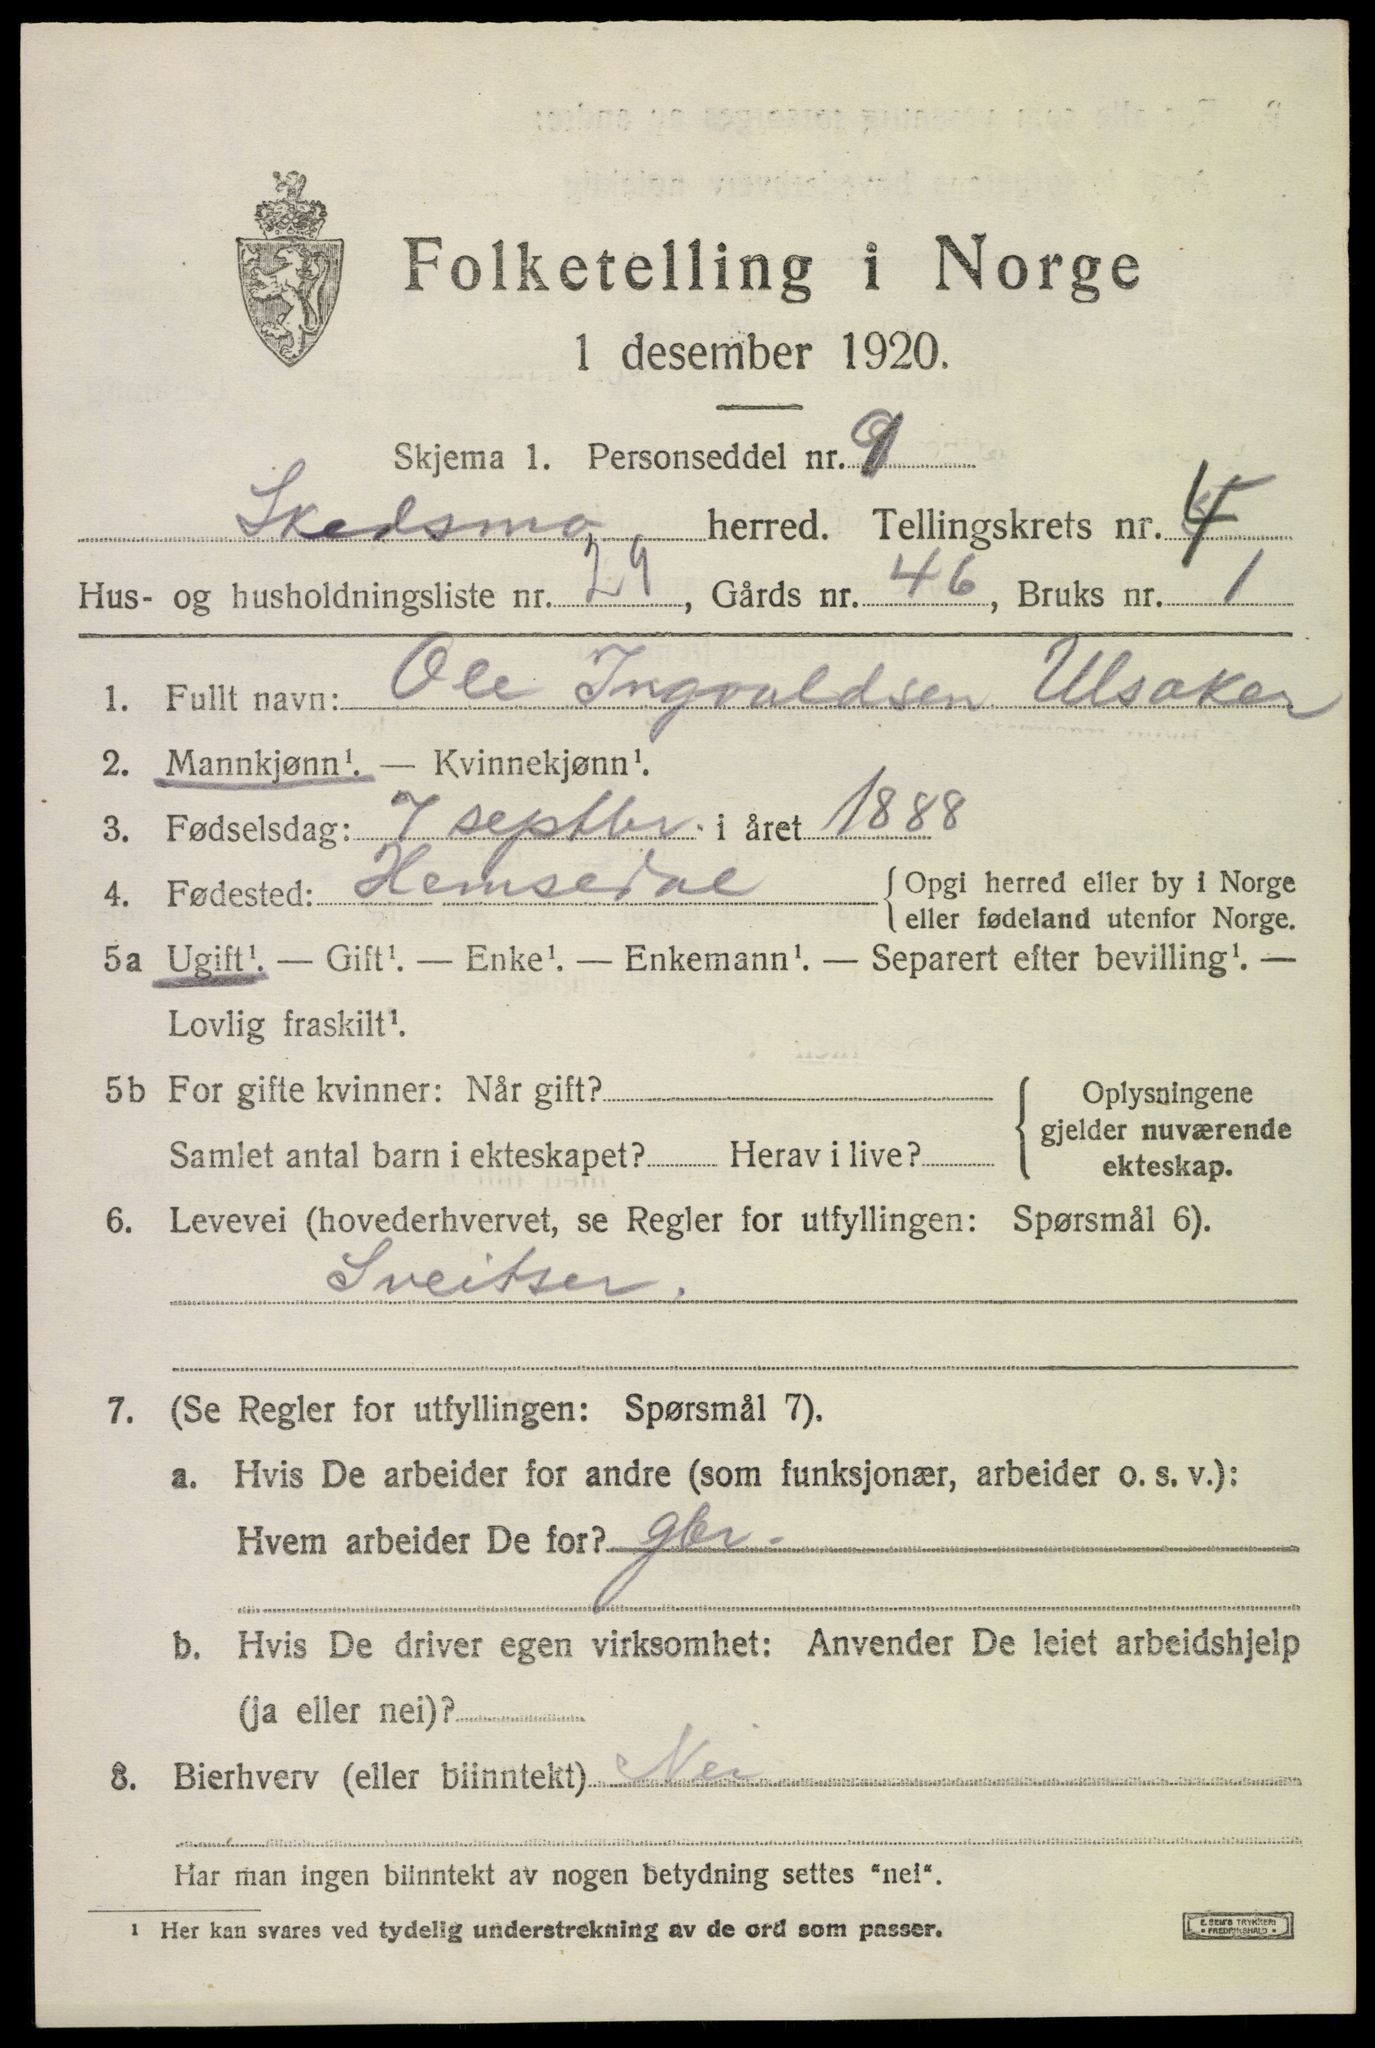 Folketelling i Norge
1 desember 1920.
Skjema 1. Personseddel nr. 9
Skedsmo herred. Tellingskrets nr. 4
Hus- og husholdningsliste nr. 29, Gårds nr. 46, Bruks nr. 1
1. Fullt navn: Ole Ingvaldsen Ulsaker
2. Mannkjønn¹. — Kvinnekjønn¹.
3. Fødselsdag: 7 septbr. i året 1888
4. Fødested: Hemsedal { Opgi herred eller by i Norge
eller fødeland utenfor Norge.
5a Ugift¹. — Gift¹. — Enke¹. — Enkemann¹. — Separert efter bevilling¹. —
Lovlig fraskilt¹.
5b For gifte kvinner: Når gift?
Samlet antal barn i ekteskapet? Herav i live?
Oplysningene
gjelder nuværende
ekteskap.
6. Levevei (hovederhvervet, se Regler for utfyllingen: Spørsmål 6).
Sveitser.
7. (Se Regler for utfyllingen: Spørsmål 7).
a. Hvis De arbeider for andre (som funksjonær, arbeider o. s. v.):
Hvem arbeider De for? gbr.
b. Hvis De driver egen virksomhet: Anvender De leiet arbeidshjelp
(ja eller nei)?
8. Bierhverv (eller biinntekt) Nei
Har man ingen biinntekt av nogen betydning settes "nei".
¹ Her kan svares ved tydelig understrekning av de ord som passer.
E. SEM'S TRYKKERI
• FREDRIKSHALD •